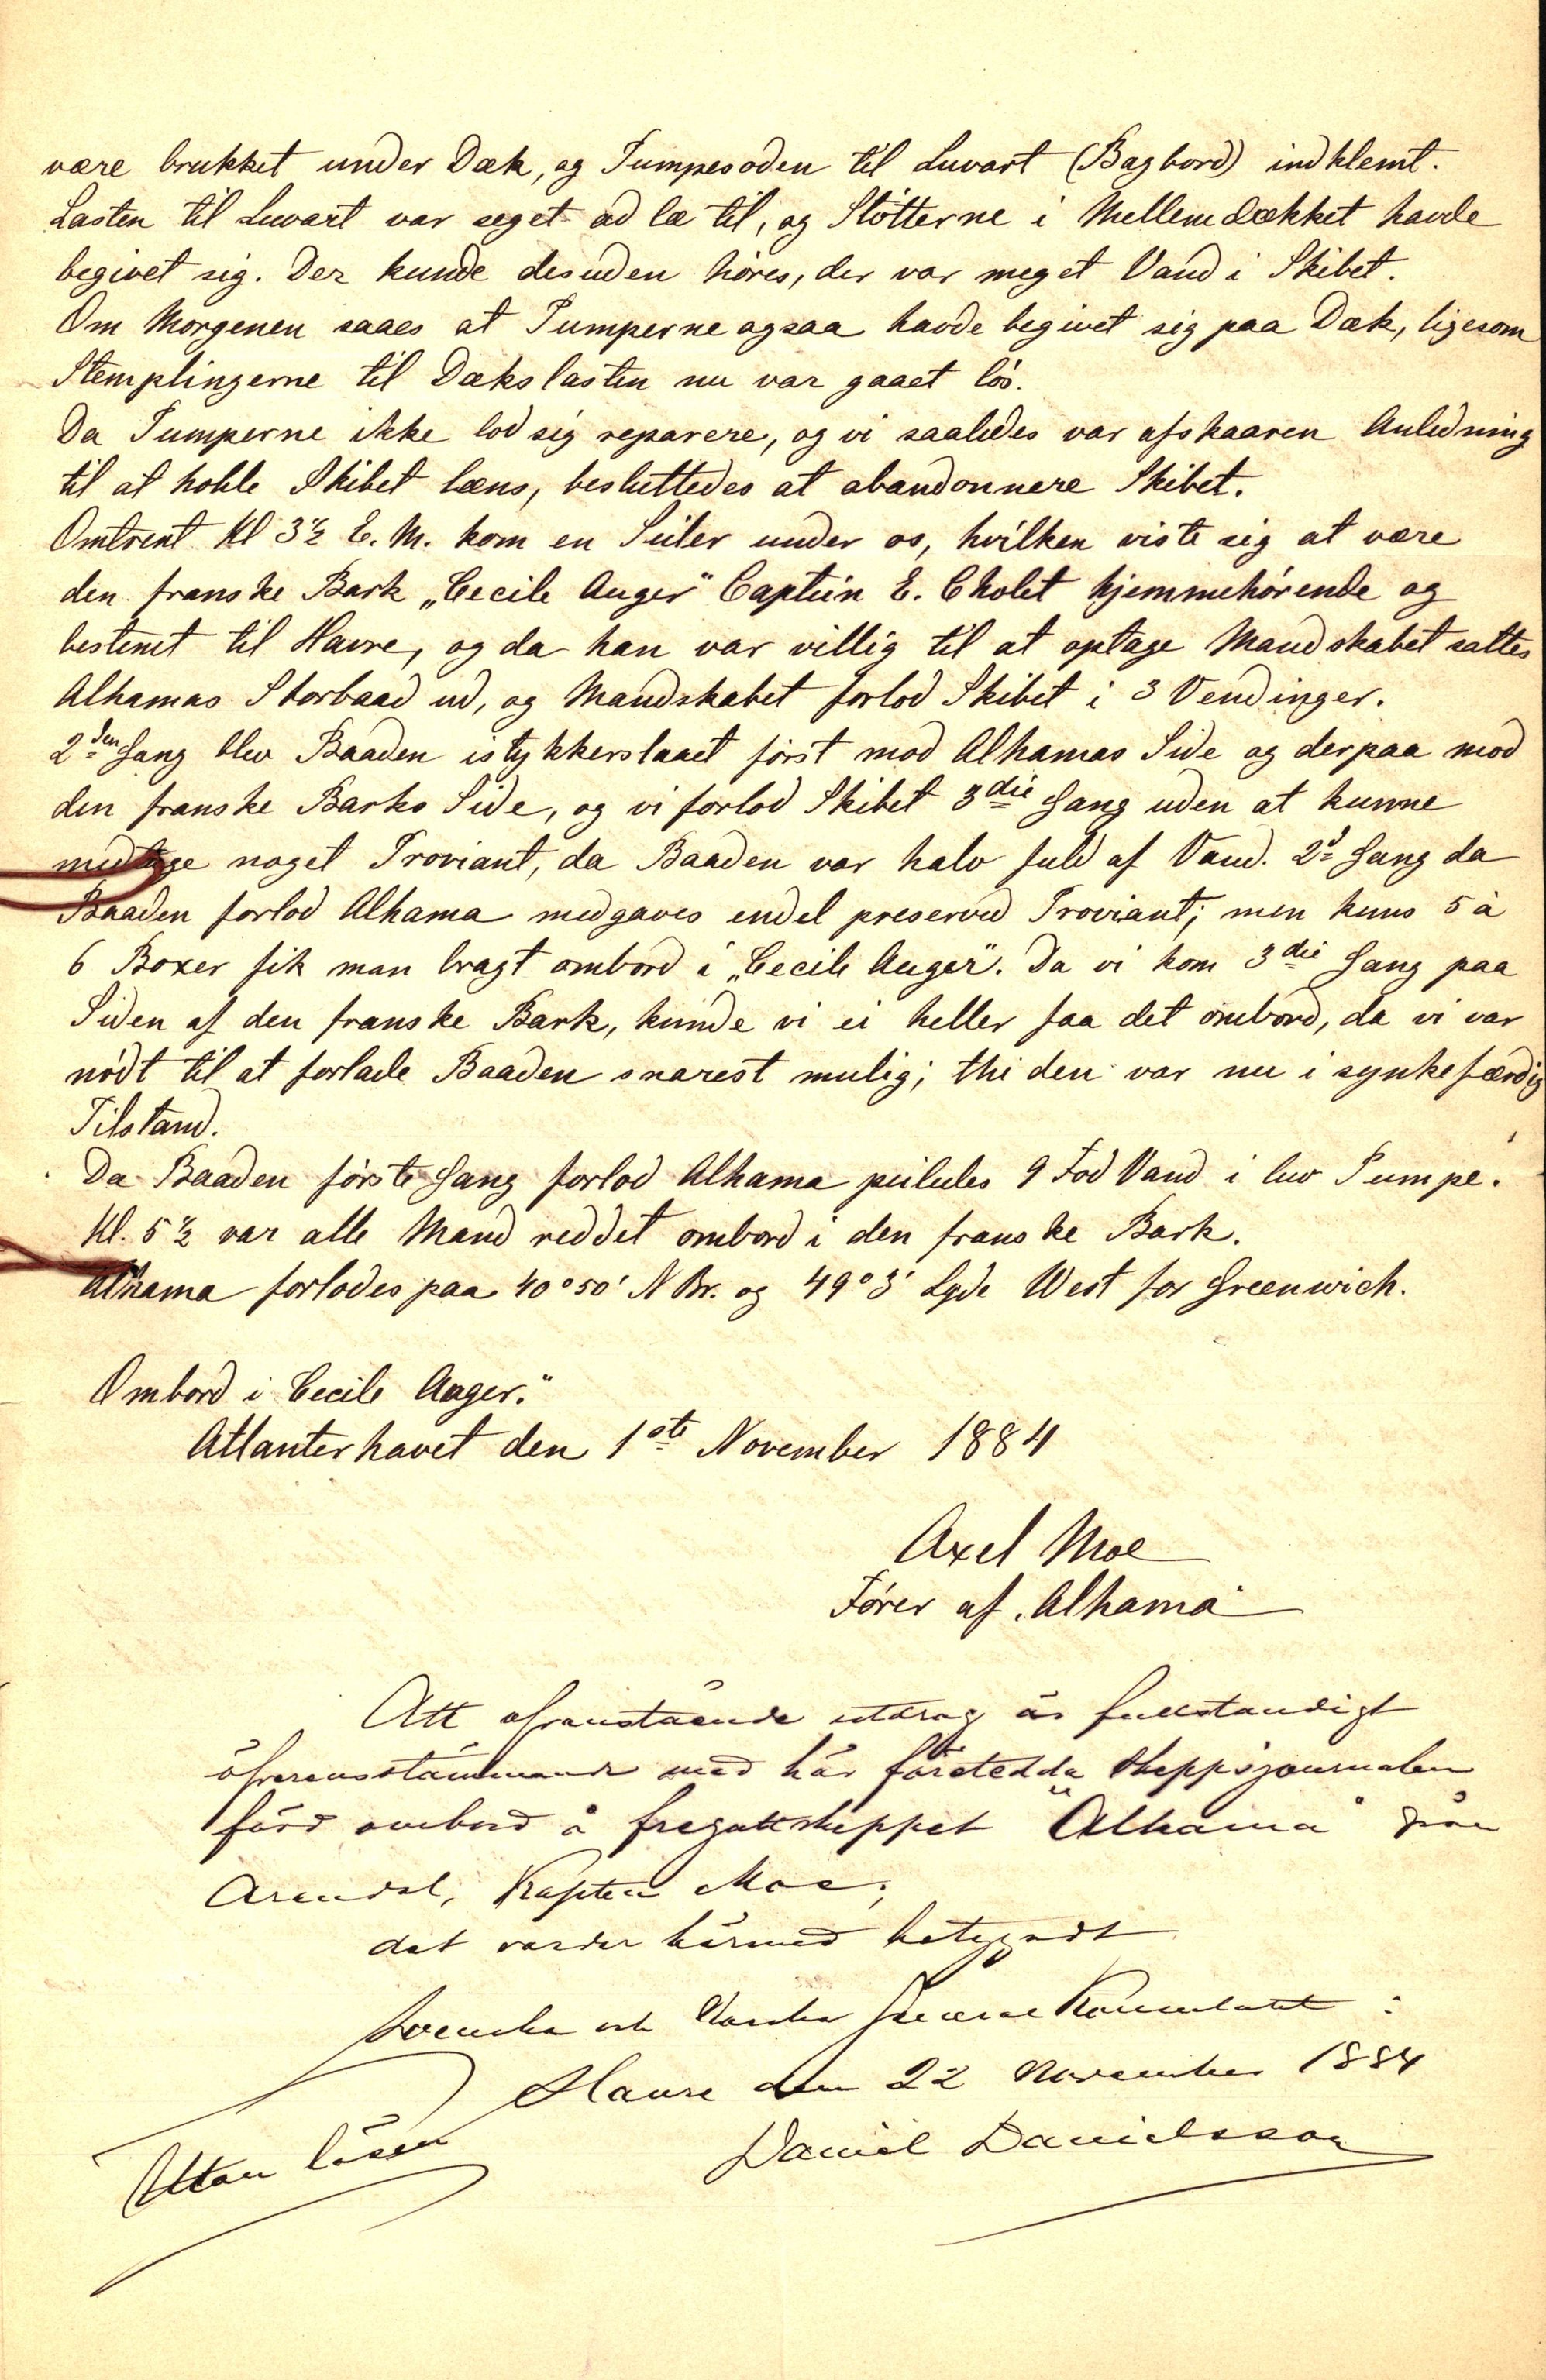 være brukket under Dæk, og Pumpesoden til Luvart (Bagbord) indklemt.
Lasten til Luvart var seget ad læ til, og Støtterne i Mellemdækket havde
begivet sig. Der kunde desuden høres, der var meget Vand i Skibet.
Om Morgenen saaes at Pumperne ogsaa havde begivet sig paa Dæk, ligesom
Stemplingerne til Dækslasten nu var gaaet løs.
Da Pumperne ikke lod sig reparere, og vi saaledes var afskaaren Anledning
til at holde Skibet læns, besluttedes at abandonnere Skibet.
Omtrent Kl 3½ E. M. kom en Seiler under os, hvilken viste sig at være
den franske Bark „Cecile Auger" Captein E. Cholet hjemmehørende og
bestemt til Havre, og da han var villig til at optage Mandskabet sattes
Alhamas Storbaad ud, og Mandskabet forlod Skibet i 3 Vendinger.
2den Gang blev Baaden istykkerslaaet først mod Alhamas Side og derpaa mod
den franske Barks Side, og vi forlod Skibet 3die Gang uden at kunne
medtage noget Proviant, da Baaden var halv fuld af Vand. 2d Gang da
Baaden forlod Alhama medgaves endel preserved Proviant; men kuns 5 à
6 Boxer fik man bragt ombord i „Cecile Auger". Da vi kom 3die Gang paa
Siden af den franske Bark, kunde vi ei heller faa det ombord, da vi var
nødt til at forlade Baaden snarest mulig; thi den var nu i synkefærdig
Tilstand.
Da Baaden første Gang forlod Alhama peiledes 9 Fod Vand i luv Pumpe.
Kl. 5½ var alle Mand reddet ombord i den franske Bark.
Alhama forlodes paa 40°50' N Br. og 49°3' Lgde West for Greenwich.
Ombord i Cecile Auger."
Atlanterhavet den 1ste November 1884
Axel Moe
Fører af „Alhama"
Att ofvanstående utdrag är fullständigt
öfverensstämmande med här företedda skeppsjournalen
förd ombord å fregattskeppet "Alhama" från
Arendal, Kapten Moe;
det varder härmed betygadt
Svenska och Norska General Konsulatet i
Havre den 22 November 1884
Utan lösen
Daniel Danielsson